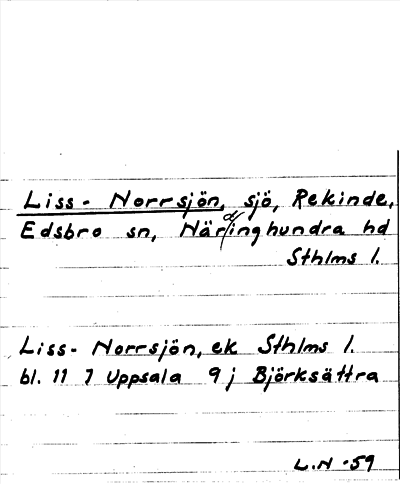 Liss- Norrsjön, sjö, Rekinde,
Edsbro sn, Närdinghundra hd
Sthlms l.
Liss- Norrsjön, ek Sthlms l.
bl. 11 7 Uppsala 9 j Björksättra
L.N -59